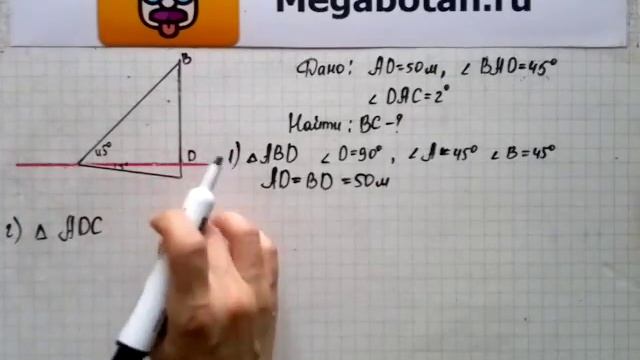 Megabotan.ru
B
Дано: AD=50м, ∠BAD=45°
∠DAC=2°
Найти: BC-?
45°
D
1) △ABD ∠D=90°, ∠A=45° ∠B=45°
AD=BD=50м
2) △ ADC